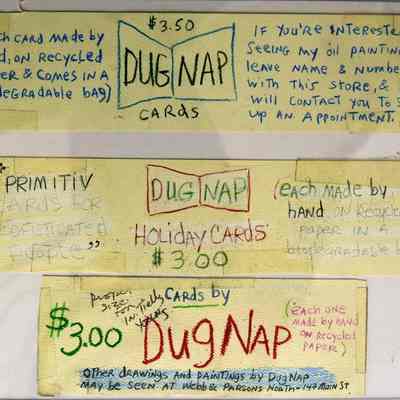 $3.50
CH CARD MADE by
D, ON RECYCLED
ER & COMES IN A
DEGRADABLE bAG)
DUG NAP
CARDS
IF YOU'RE INTERESTE
SEEING MY OIL PAINTIN
LEAVE NAME & NUMBE
WITH THIS STORE, &
WILL CONTACT YOU TO S
UP AN APPOINTMENT.
"PRIMITIV
CARDS FOR
SOPHISTICATED
PEOPLE"
DUG NAP
'HOLIDAY CARDS'
$3.00
(EACH MADE by
HAND ON RECYCLE
PAPER IN A
BIODEGRADABLE b
$3.00
CARDS by
DUG NAP
(EACH ONE
MADE by HAND
ON RECYCLED
PAPER)
OTHER DRAWINGS AND PAINTINGS by DUG NAP
MAY BE SEEN AT WEBB & PARSONS NORTH-147 MAIN ST.